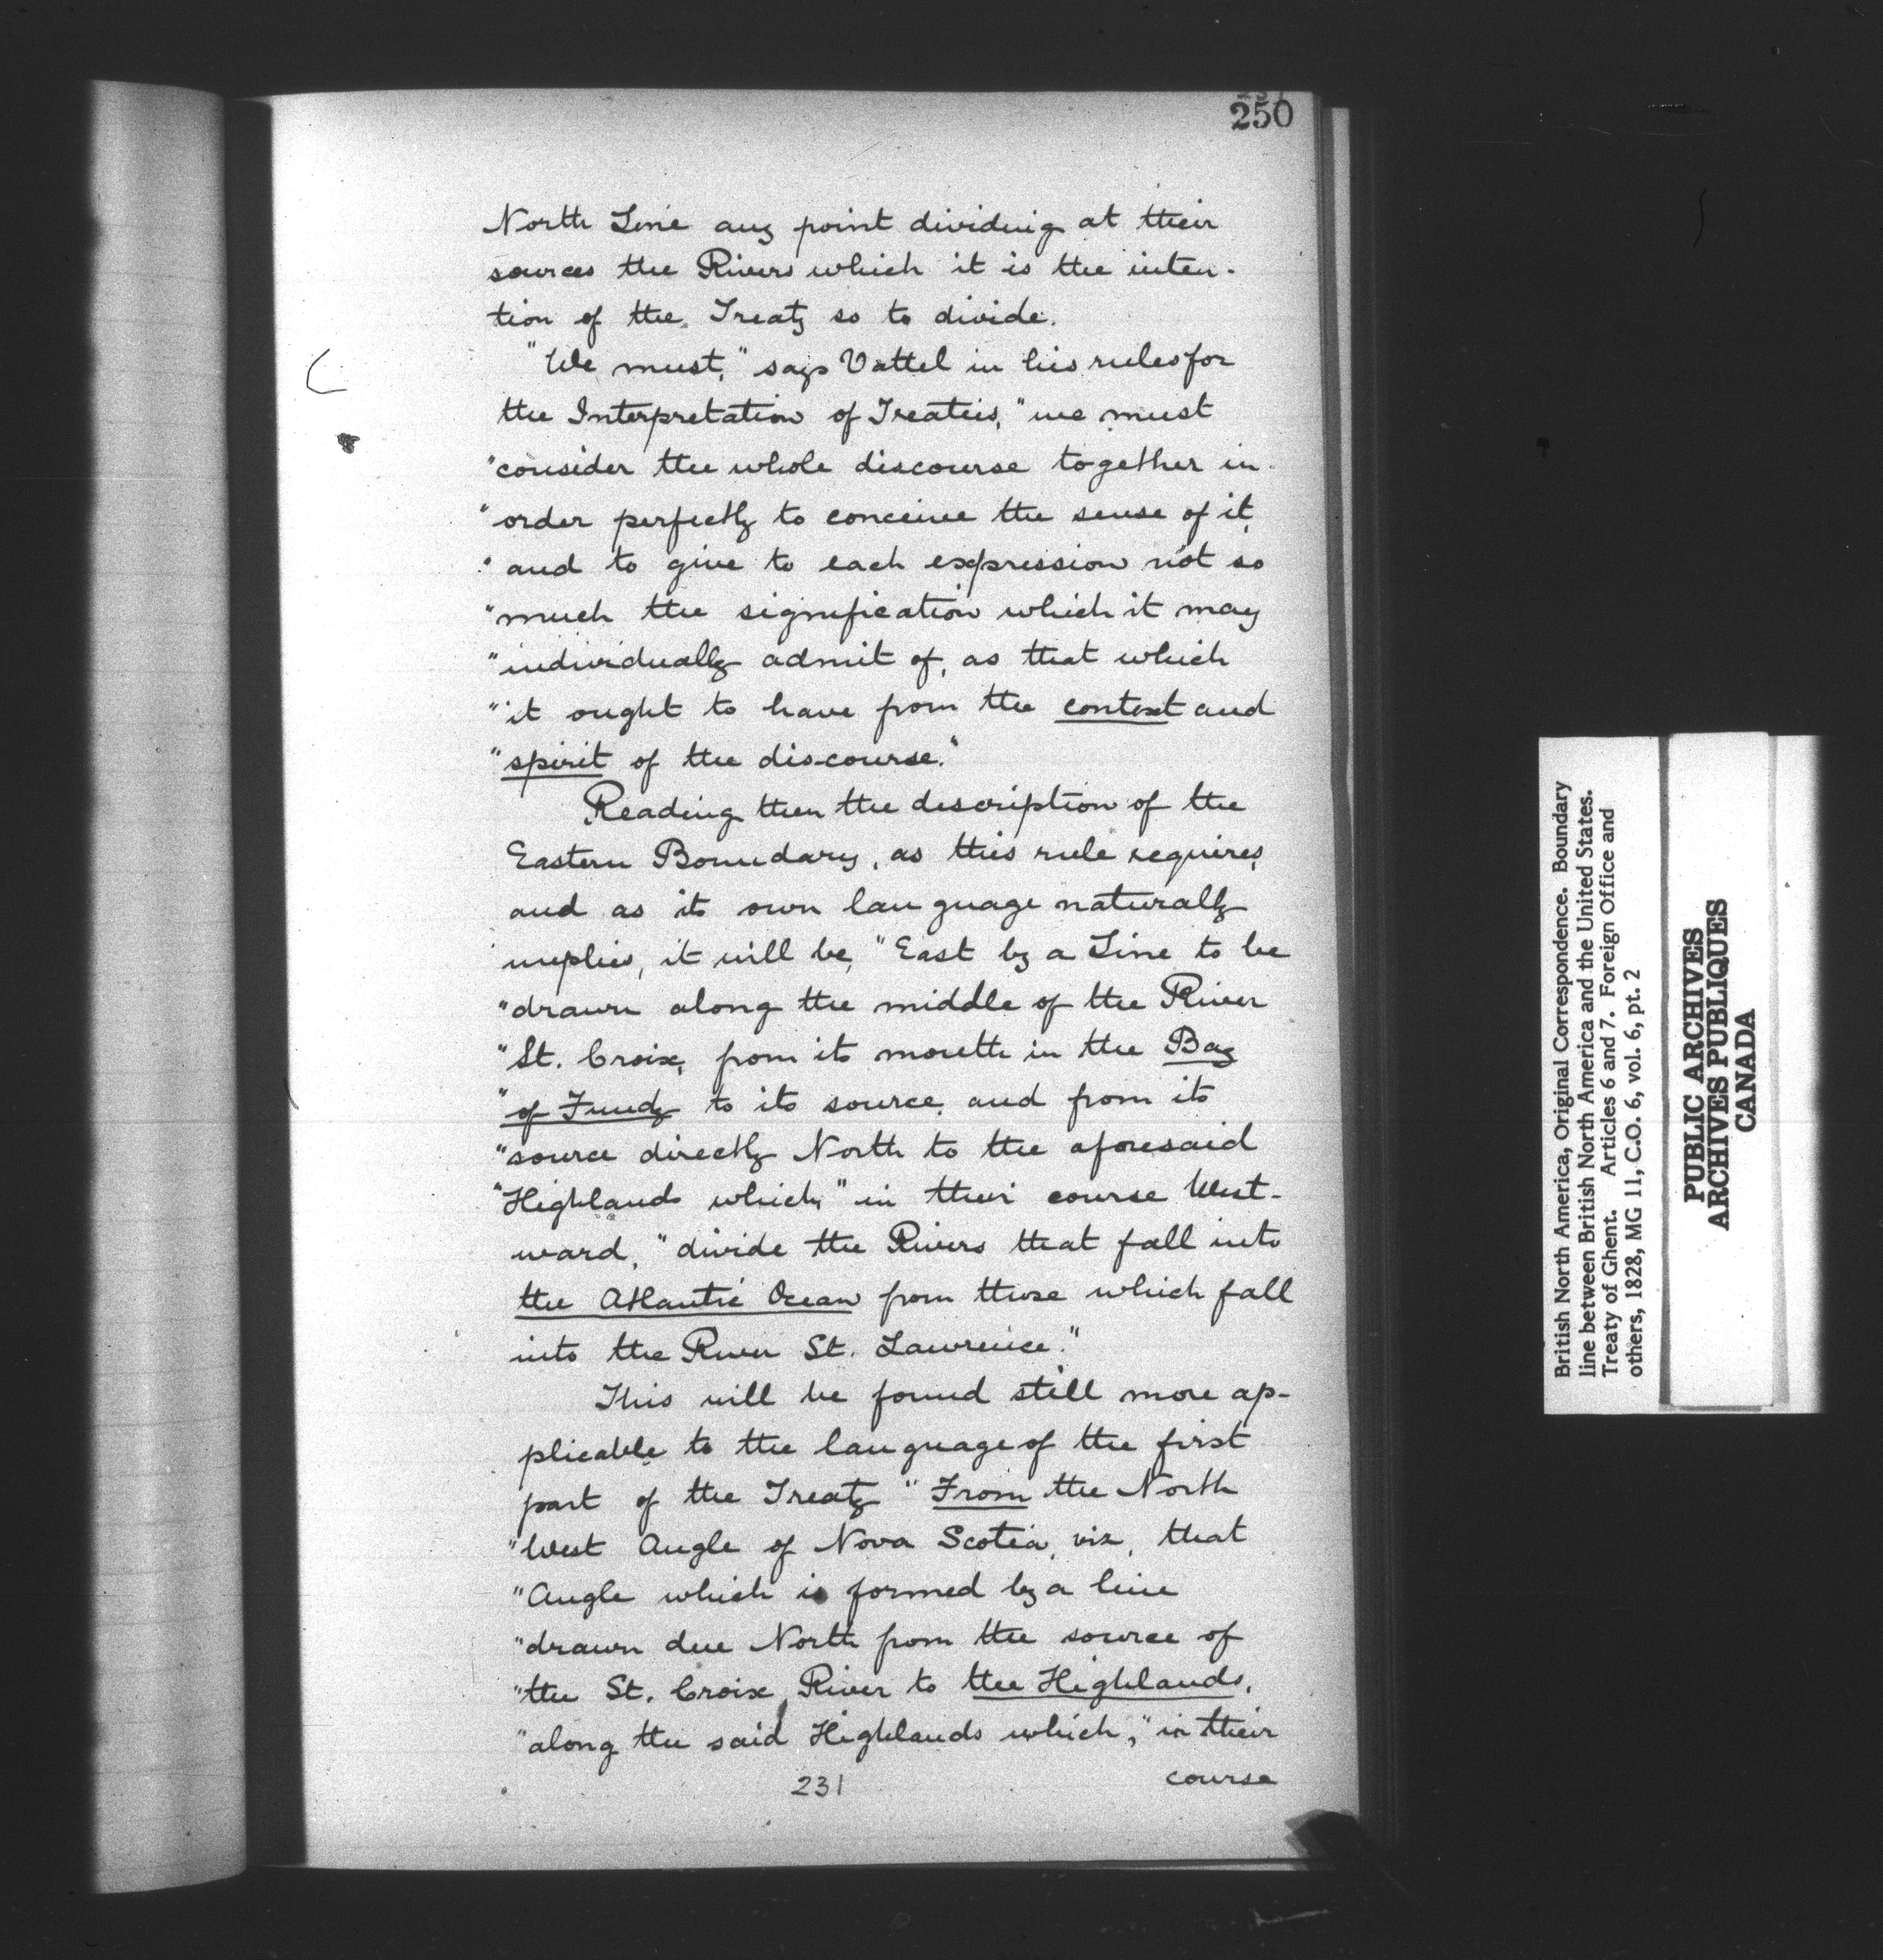 250
North Line any point dividing at their
sources the Rivers which it is the inten-
tion of the Treaty so to divide.
"We must," says Vattel in his rules for
the Interpretation of Treaties, "we must
"consider the whole discourse together in
"order perfectly to conceive the sense of it,
"and to give to each expression not so
"much the signification which it may
"individually admit of, as that which
"it ought to have from the context and
"spirit of the discourse."
Reading then the description of the
Eastern Boundary, as this rule requires,
and as its own language naturally
implies, it will be, "East by a Line to be
"drawn along the middle of the River
"St. Croix, from its mouth in the Bay
"of Fundy to its source, and from its
"source directly North to the aforesaid
"Highlands which," in their course West-
ward, "divide the Rivers that fall into
the Atlantic Ocean from those which fall
into the River St. Lawrence."
This will be found still more ap-
plicable to the language of the first
part of the Treaty "From the North
"West Angle of Nova Scotia, viz, that
"Angle which is formed by a line
"drawn due North from the source of
"the St. Croix River to the Highlands,
"along the said Highlands which," in their
course
231
British North America, Original Correspondence. Boundary
line between British North America and the United States.
Treaty of Ghent. Articles 6 and 7. Foreign Office and
others, 1828, MG 11, C.O. 6, vol. 6, pt. 2
PUBLIC ARCHIVES
ARCHIVES PUBLIQUES
CANADA